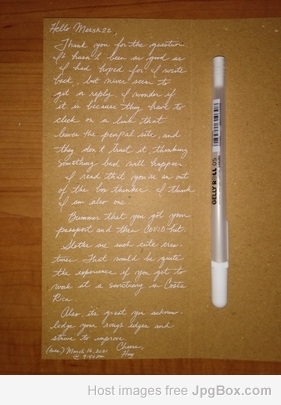 Hello Mersh22,
Thank you for the question
It hasn't been as good as
I had hoped for. I write
back, but never seem to
get a reply. I wonder if
it is because they have to
click on a link that
leaves the penpal site, and
they don't trust it, thinking
something bad will happen.
I read that you're an out
of the box thinker. I think
I am also one.
Bummer that you got your
passport and then Covid hit.
Sloths are such cute crea-
tures. That would be quite
the experience if you got to
work at a sanctuary in Costa
Rica.
Also its great you acknow-
ledge your rough edges and
strive to improve.
Cheers,
March 16, 2021
GELLY ROLL 05
Host images free JpgBox.com